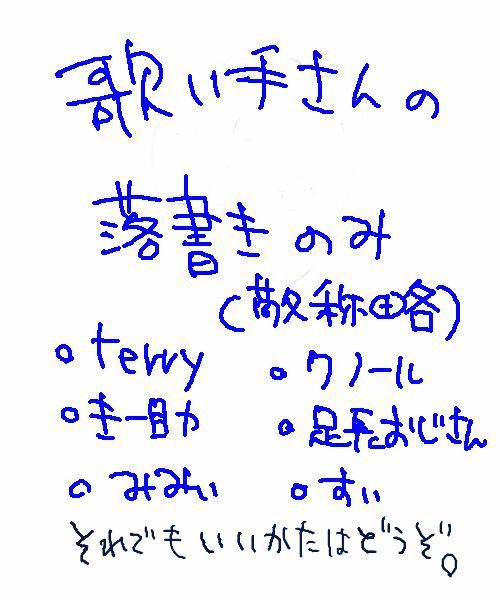 歌い手さんの
落書きのみ
(敬称略)
○terry ○クノール
○き一助 ○足手おじさん
○みみぃ ○すぃ
それでもいいかたはどうぞ。